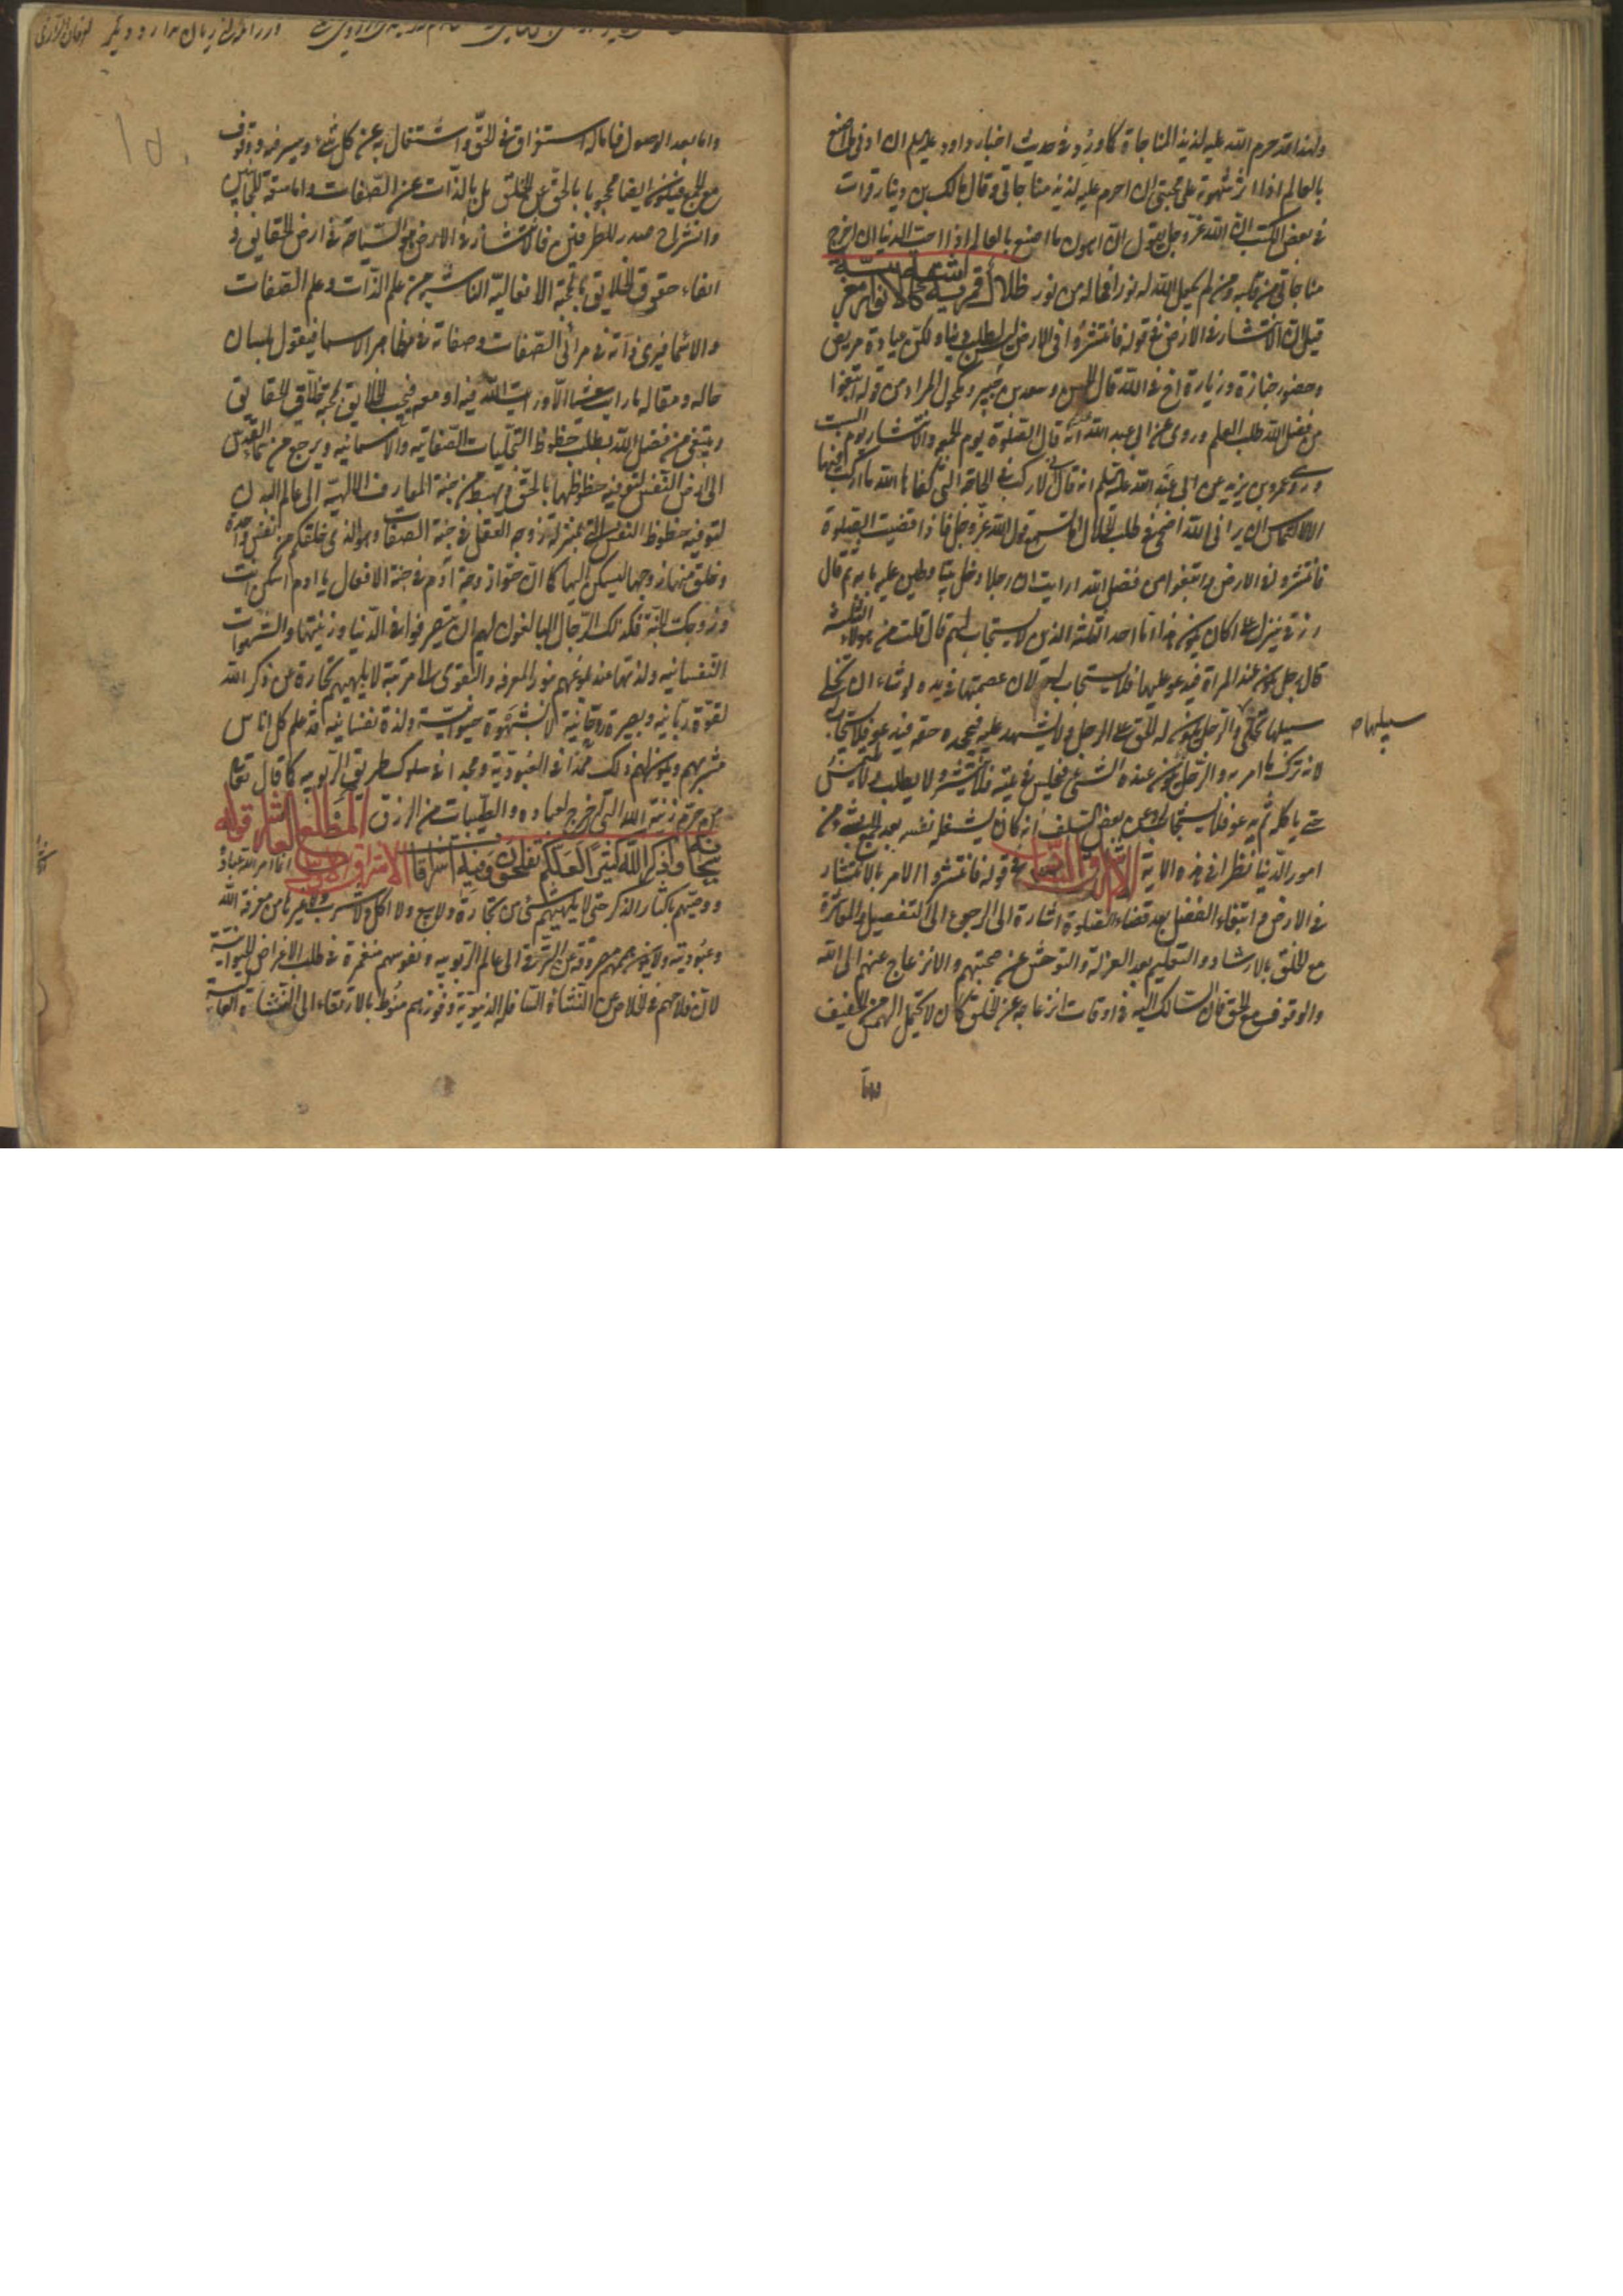 ولهذا قد حرم الله عليه لذيذ المناجاة كما ورد في حديث اخبار داود عليه السلم ان ادنى ما اصنع
بالعالم اذا اثر شهوته على محبتى ان احرم عليه لذيذ مناجاتى وقال مالك بن دينار قرات
في بعض الكتب ان الله عز وجل يقول ان اهون ما اصنع بالعالم اذا احب الدنيا ان اخرج
مناجاتى من قلبه ومن لم يجعل الله له نورا فما له من نور
قيل ان الانتشار في الارض في قوله فانتشروا في الارض ليس لطلب دنيا ولكن عيادة مريض
وحضور جنازة وزيارة اخ في الله قال الحسن وسعيد بن جبير ومكحول المراد من قوله وابتغوا
من فضل الله طلب العلم وروى عن ابى عبد الله انه قال الصلوة يوم الجمعة والانتشار يوم السبت
وروى عمرو بن يزيد عن ابى عبد الله عليه السلم انه قال انى لاركب في الحاجة التى كفانا الله ما اركب فيها
الا التماس ان يرانى الله اضحى في طلب الحلال اما تسمع قول الله عز وجل فاذا قضيت الصلوة
فانتشروا في الارض وابتغوا من فضل الله ارايت ان رجلا دخل بيتا وطين عليه بابه ثم قال
رزقى ينزل على اكان يكون هذا اما انه احد الثلثة الذين لا يستجاب لهم قال قلت من هؤلاء الثلثة
قال رجل يكون عنده المراة فيدعو عليها فلا يستجاب له لان عصمتها في يده لو شاء ان يخلى
سبيلها لخلى والرجل يكون له الحق على الرجل ولا يشهد عليه فيجحده حقه فيدعو فلا يستجاب
سبيلها
لانه ترك ما امر به والرجل يكون عنده الشئ فيجلس في بيته فلا ينتشر ولا يطلب ولا يلتمس
حتى ياكله ثم يدعو فلا يستجاب له وعن بعض السلف انه كان يشغل نفسه بعد الجمعة بشئ من
امور الدنيا نظرا في هذه الاية في قوله فانتشروا الامر بالانتشار
في الارض وابتغاء الفضل بعد قضاء الصلوة اشارة الى الرجوع الى التفصيل والمعاشرة
مع الخلق بالارشاد والتعليم بعد العزلة والتوحش عن صحبتهم والانزعاج عنهم الى الله
والوقوف مع الحق فان السالك اليه في اوقات انزعاجه عن الخلق كان لا يحتمل الهمس من الخفيف
واما
واما بعد الوصول فاما له استغراق في الحق واشتغال به عن كل شئ
مع الجمع فيكون ايضا محجوبا بالحق عن الخلق بل بالذات عن الصفات واما سعة للجانبين
وانشراح صدر للطرفين فالانتشار في الارض هو السياحة في ارض الحقايق و
ايفاء حقوق الخلايق بالمحبة الافعالية الناشية من علم الذات وعلم الصفات
والاسما فيرى ذاته في مرائى الصفات وصفاته في مظاهر الاسما فيقول بلسان
حاله ومقاله ما رايت شيئا الا ورايت الله فيه او معه فيحب الخلايق بمحبة خلاق الحقايق
ويبتغى من فضل الله بطلب حظوظ التجليات الصفاتية والاسمائية ويرجع من سماء القدس
الى ارض النفس لتوفية حظوظها بالحق ويهبط من جنة المعارف الالهية الى عالم البدن
لتوفية حظوظ النفس التى بمنزلة زوج العقل في جنة الصفات هو الذى خلقكم من نفس واحدة
وخلق منها زوجها ليسكن اليها كما ان حوا زوجة آدم في جنة الافعال يا ادم اسكن انت
وزوجك الجنة فكذلك الرجال البالغون لهم ان يتصرفوا في الدنيا وزينتها والشهوات
النفسانية ولذتها عند بلوغهم بنور المعرفة والتقوى الى مرتبة لا يلهيهم تجارة عن ذكر الله
لقوة ربانية وبصيرة روحانية لا بشهوة حيوانية ولذة نفسانية قد علم كل اناس
مشربهم ويكون لهم ذلك ممدا في العبودية ومجدا في سلوك طريق الربوبية كما قال تعالى
من حرم زينة الله التى اخرج لعباده والطيبات من الرزق المطلع العاشر قوله
سبحانه واذكروا الله كثيرا لعلكم تفلحون وفيه اشراقات الاشراق الاول انما امر الله عباده
ووصيهم باكثار الذكر حتى لا يلهيهم شئ من تجارة ولا بيع ولا اكل ولا شرب ولا غيرها من معرفة الله
وعبوديته ولا يكون هممهم مصروفة عن الترقى الى عالم الربوبية ونفوسهم منغمرة في طلب الاغراض الحيوانية
لان فلاحهم في الخلاص عن النشاة السافلة الدنيوية وفوزهم منوط بالارتقاء الى النشاة العالية